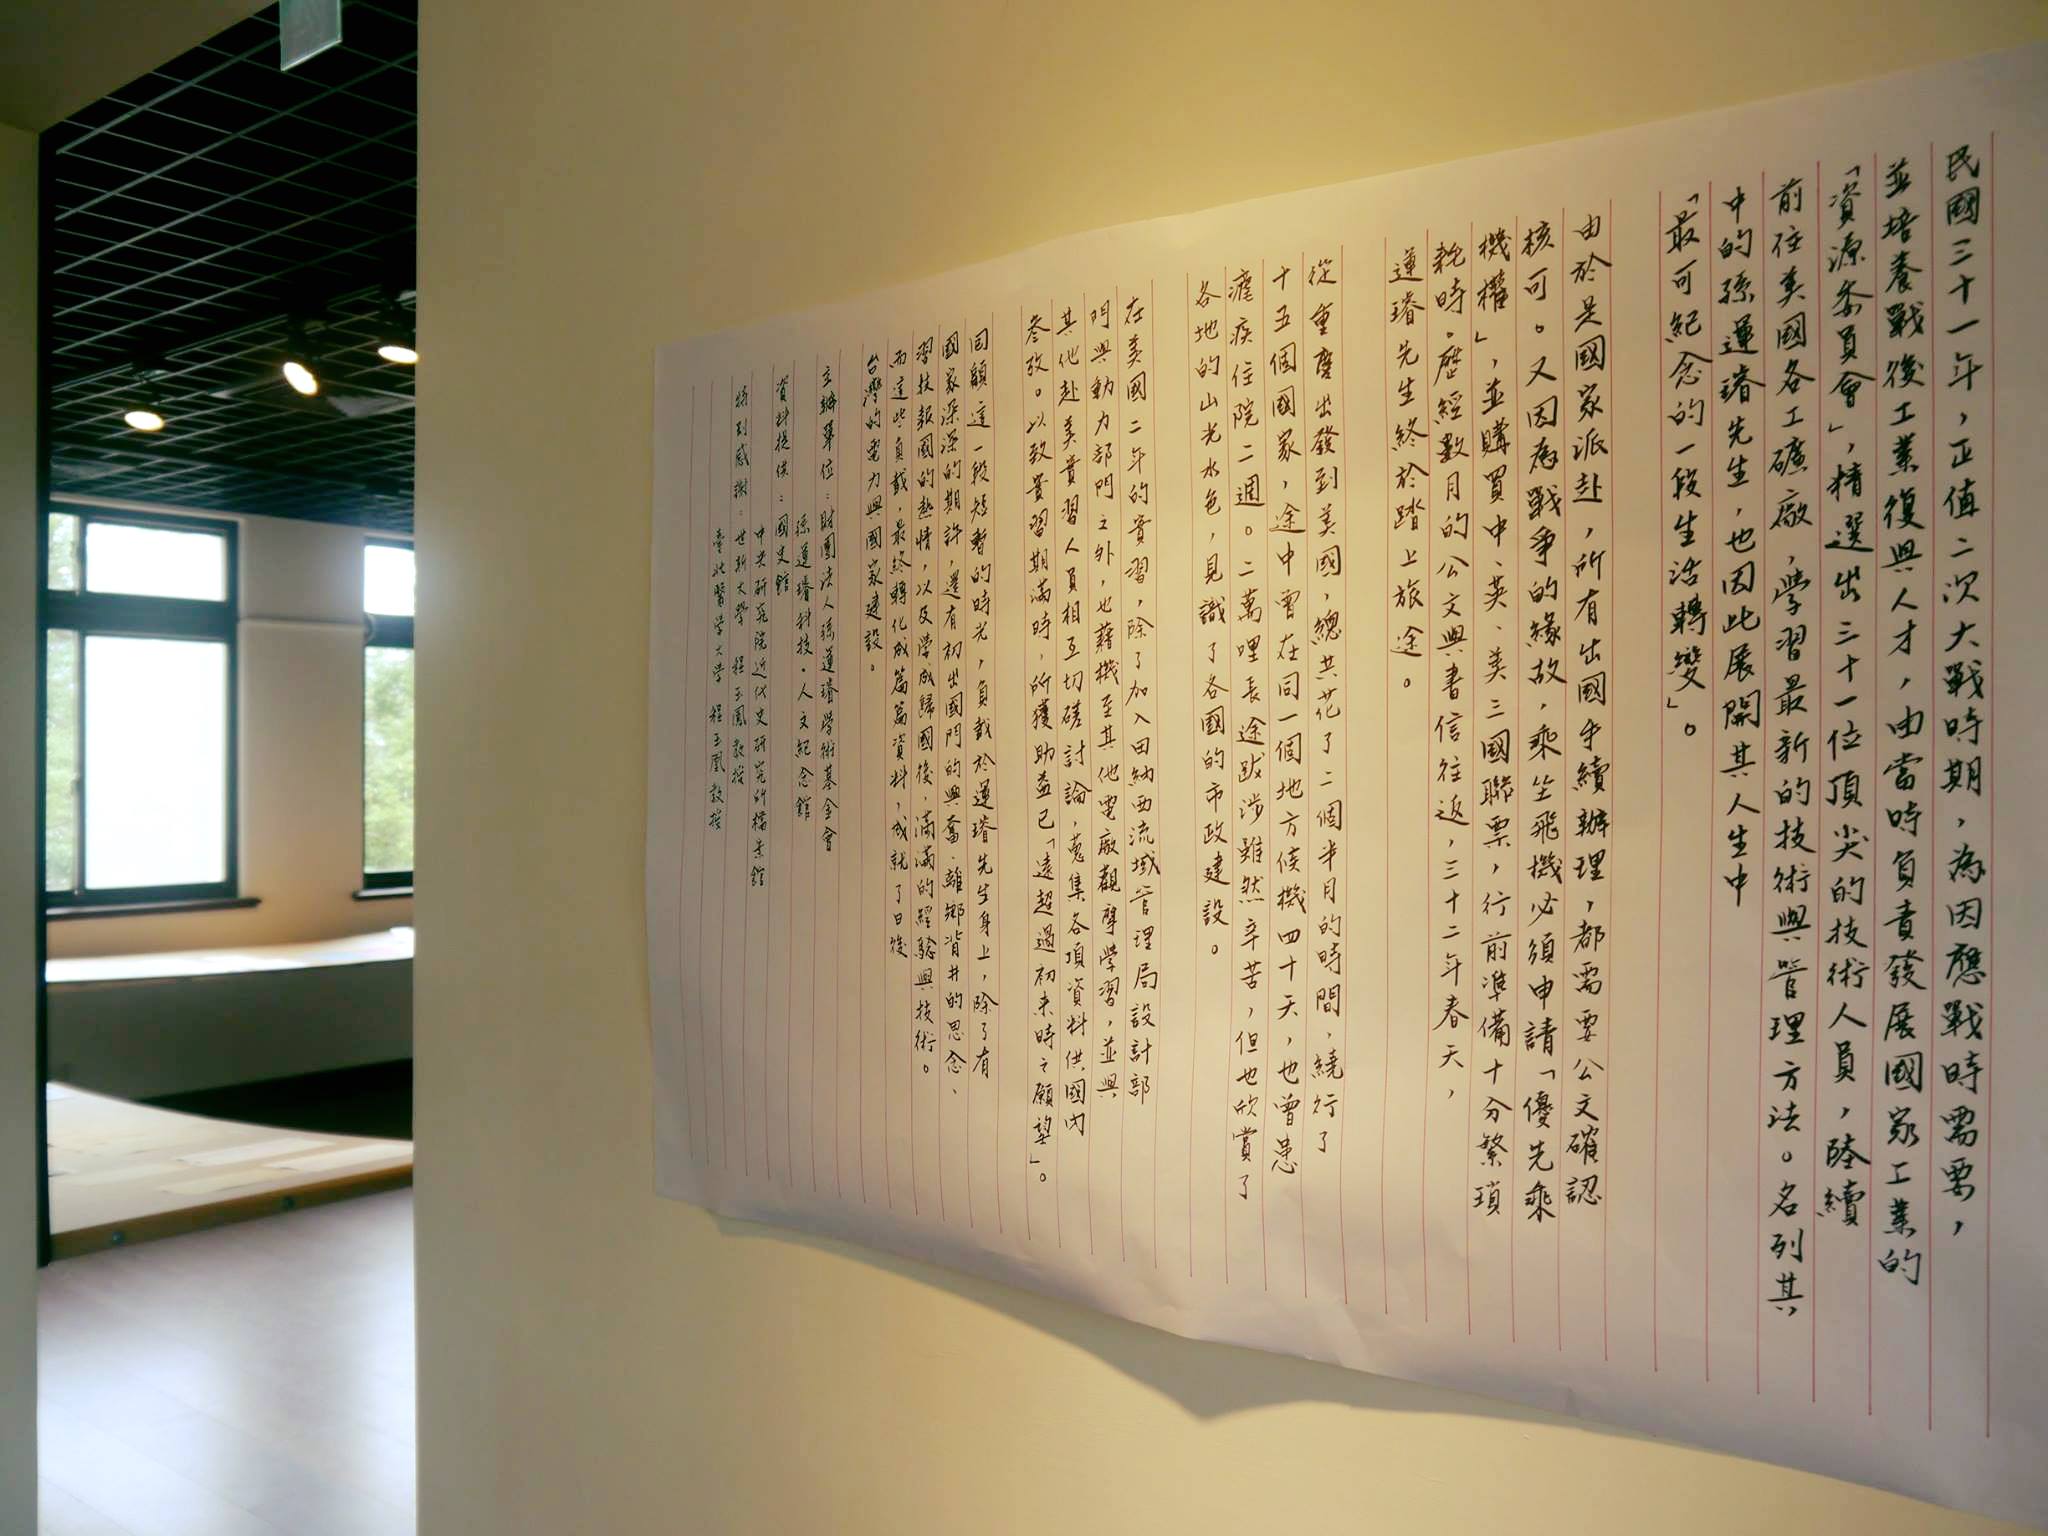 民國三十一年，正值二次大戰時期，為因應戰時需要，
並培養戰後工業復興人才，由當時負責發展國家工業的
「資源委員會」，精選出三十一位頂尖的技術人員，陸續
前往美國各工礦廠，學習最新的技術與管理方法。名列其
中的孫運璿先生，也因此展開其人生中
「最可紀念的一段生活轉變」。
由於是國家派赴，所有出國手續辦理，都需要公文確認
核可。又因為戰爭的緣故，乘坐飛機必須申請「優先乘
機權」，並購買中、英、美三國聯票，行前準備十分繁瑣
耗時。歷經數月的公文與書信往返，三十二年春天，
運璿先生終於踏上旅途。
從重慶出發到美國，總共花了二個半月的時間，繞行了
十五個國家，途中曾在同一個地方候機四十天，也曾患
瘧疾住院二週。二萬哩長途跋涉雖然辛苦，但也欣賞了
各地的山光水色，見識了各國的市政建設。
在美國二年的實習，除了加入田納西流域管理局設計部
門與動力部門之外，也藉機至其他電廠觀摩學習，並與
其他赴美實習人員相互切磋討論，蒐集各項資料供國內
參攷。以致實習期滿時，所獲助益已「遠超過初來時之願望」。
回顧這一段短暫的時光，負載於運璿先生身上，除了有
國家深深的期許，還有初出國門的興奮、離鄉背井的思念、
習技報國的熱情，以及學成歸國後，滿滿的經驗與技術。
而這些負載，最終轉化成篇篇資料，成就了日後
台灣的電力與國家建設。
主辦單位：財團法人孫運璿學術基金會
孫運璿科技・人文紀念館
資料提供：國史館
中央研究院近代史研究所檔案館
特別感謝：世新大學 程玉鳳教授
臺北醫學大學 程玉凰教授